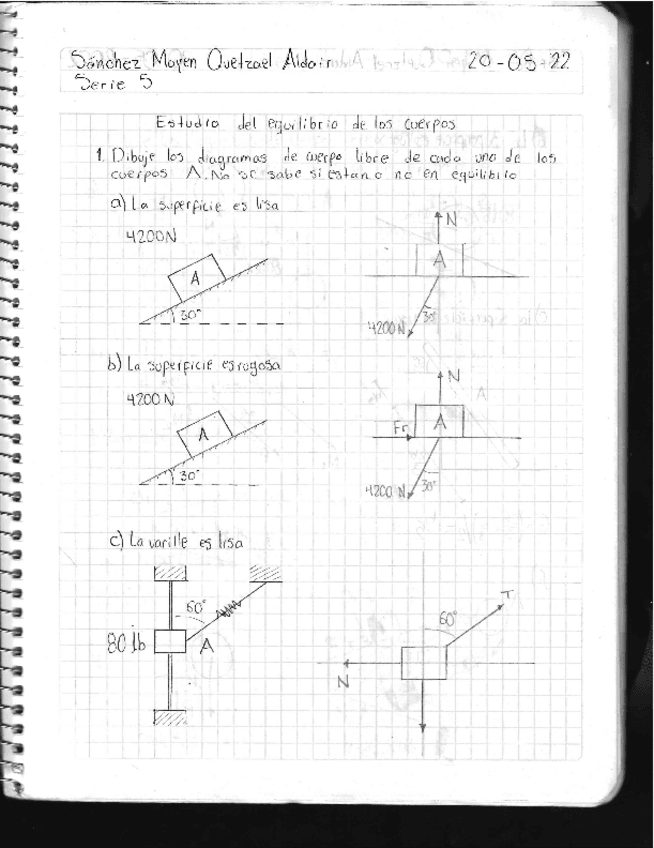 Sánchez Moyen Quetzael Aldair 20-05-22
Serie 5
Estudio del equilibrio de los cuerpos
1. Dibuje los diagramas de cuerpo libre de cada uno de los
cuerpos A. No se sabe si estan o no en equilibrio
a) La superficie es lisa
4200N
A
30°
N
A
30°
4200N
b) La superficie es rugosa
4200N
A
30°
N
Fr
A
30°
4200N
c) La varille es lisa
60°
80 lb
A
60°
T
N